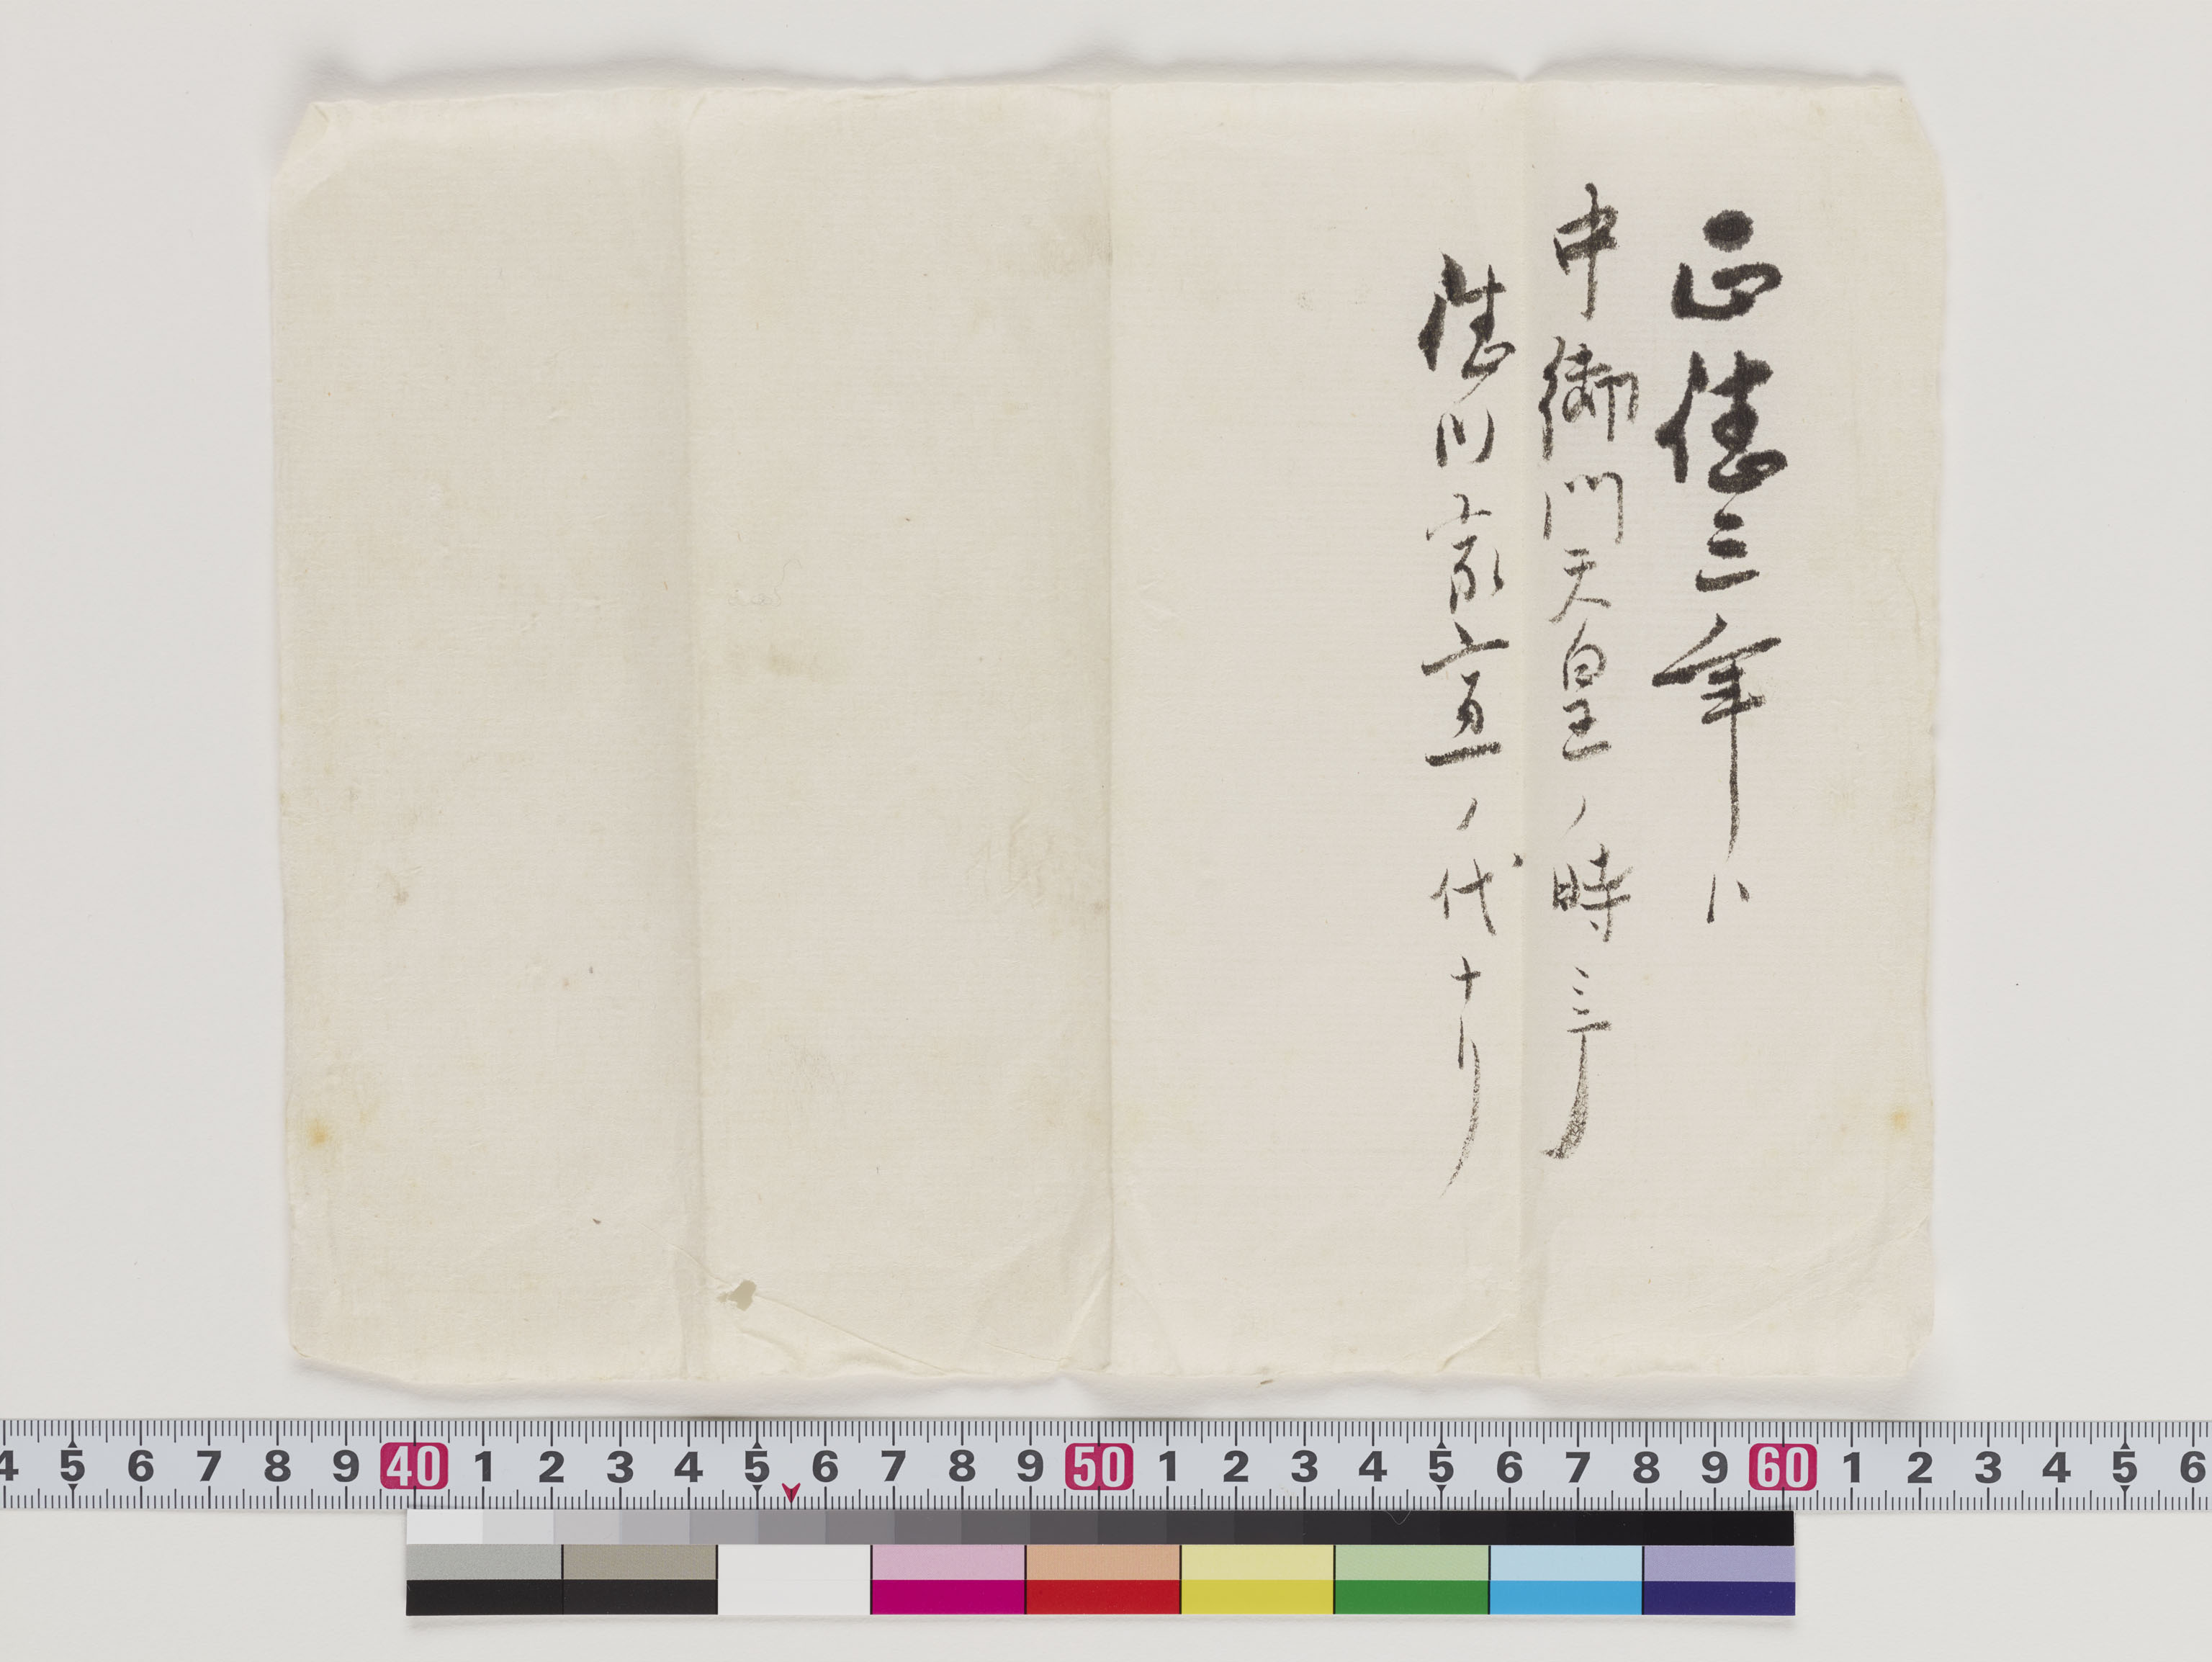 正徳三年ハ
中御門天皇ノ時ニシテ
徳川家宣ノ代ナリ
4 5 6 7 8 9 40 1 2 3 4 5 6 7 8 9 50 1 2 3 4 5 6 7 8 9 60 1 2 3 4 5 6